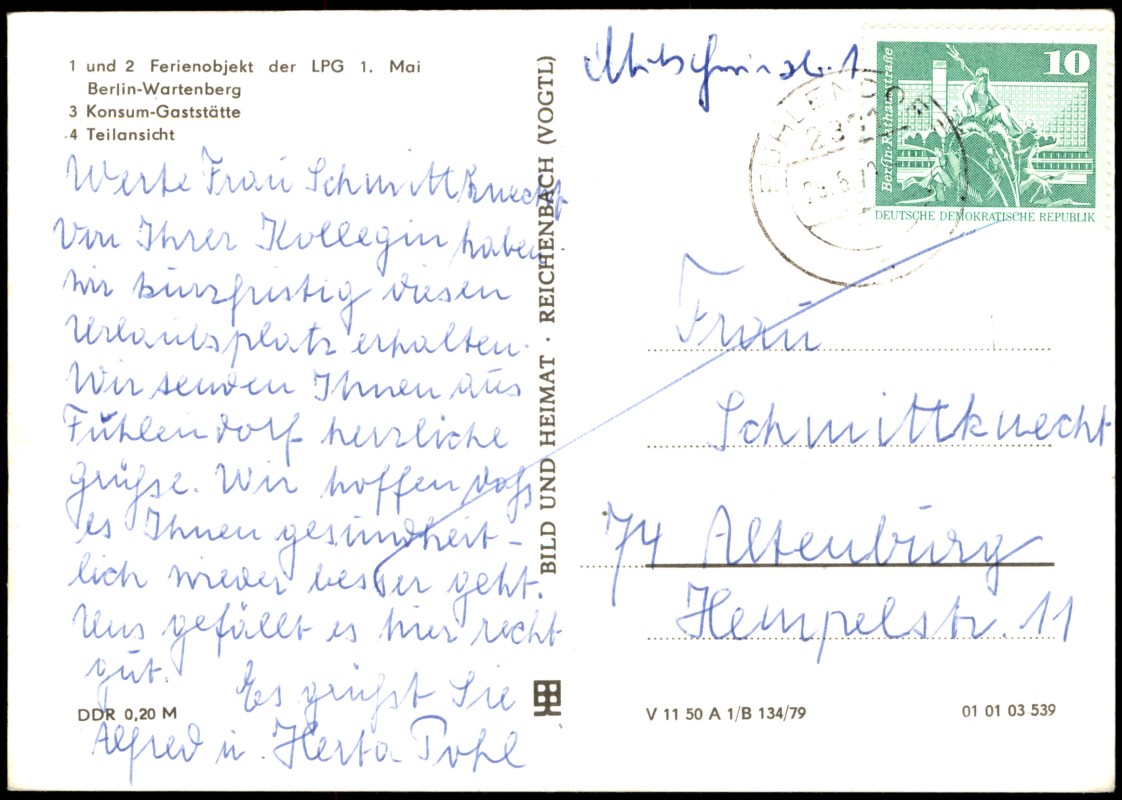 1 und 2 Ferienobjekt der LPG 1. Mai
Berlin-Wartenberg
3 Konsum-Gaststätte
4 Teilansicht
Werte Frau Schmittknecht
Von Ihrer Kollegin haben
wir kurzfristig diesen
Urlaubsplatz erhalten.
Wir senden Ihnen aus
Fuhlendorf herzliche
grüßse. Wir hoffen daß
es Ihnen gesundheit-
lich wieder besser geht.
Uns gefällt es hier recht
gut. Es grüßt Sie
Alfred u. Herta Pohl
DDR 0,20 M
BILD UND HEIMAT · REICHENBACH (VOGTL)
10
Berlin Rathausstraße
DEUTSCHE DEMOKRATISCHE REPUBLIK
FUHLENDORF
Frau
Schmittknecht
74 Altenburg
Hempelstr. 11
V 11 50 A 1/B 134/79
01 01 03 539